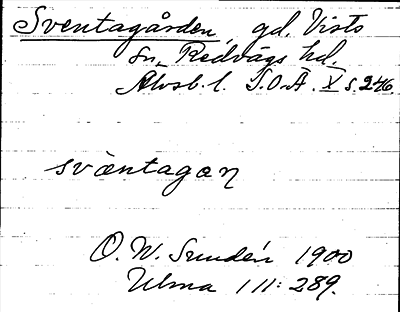 Sventagården, gd, Visto
sn, Redvägs hd.
Älvsb. l. S.O.Ä. X s. 246
svæntagaɳ
O. W. Sundén 1900
Ulma 111: 289.